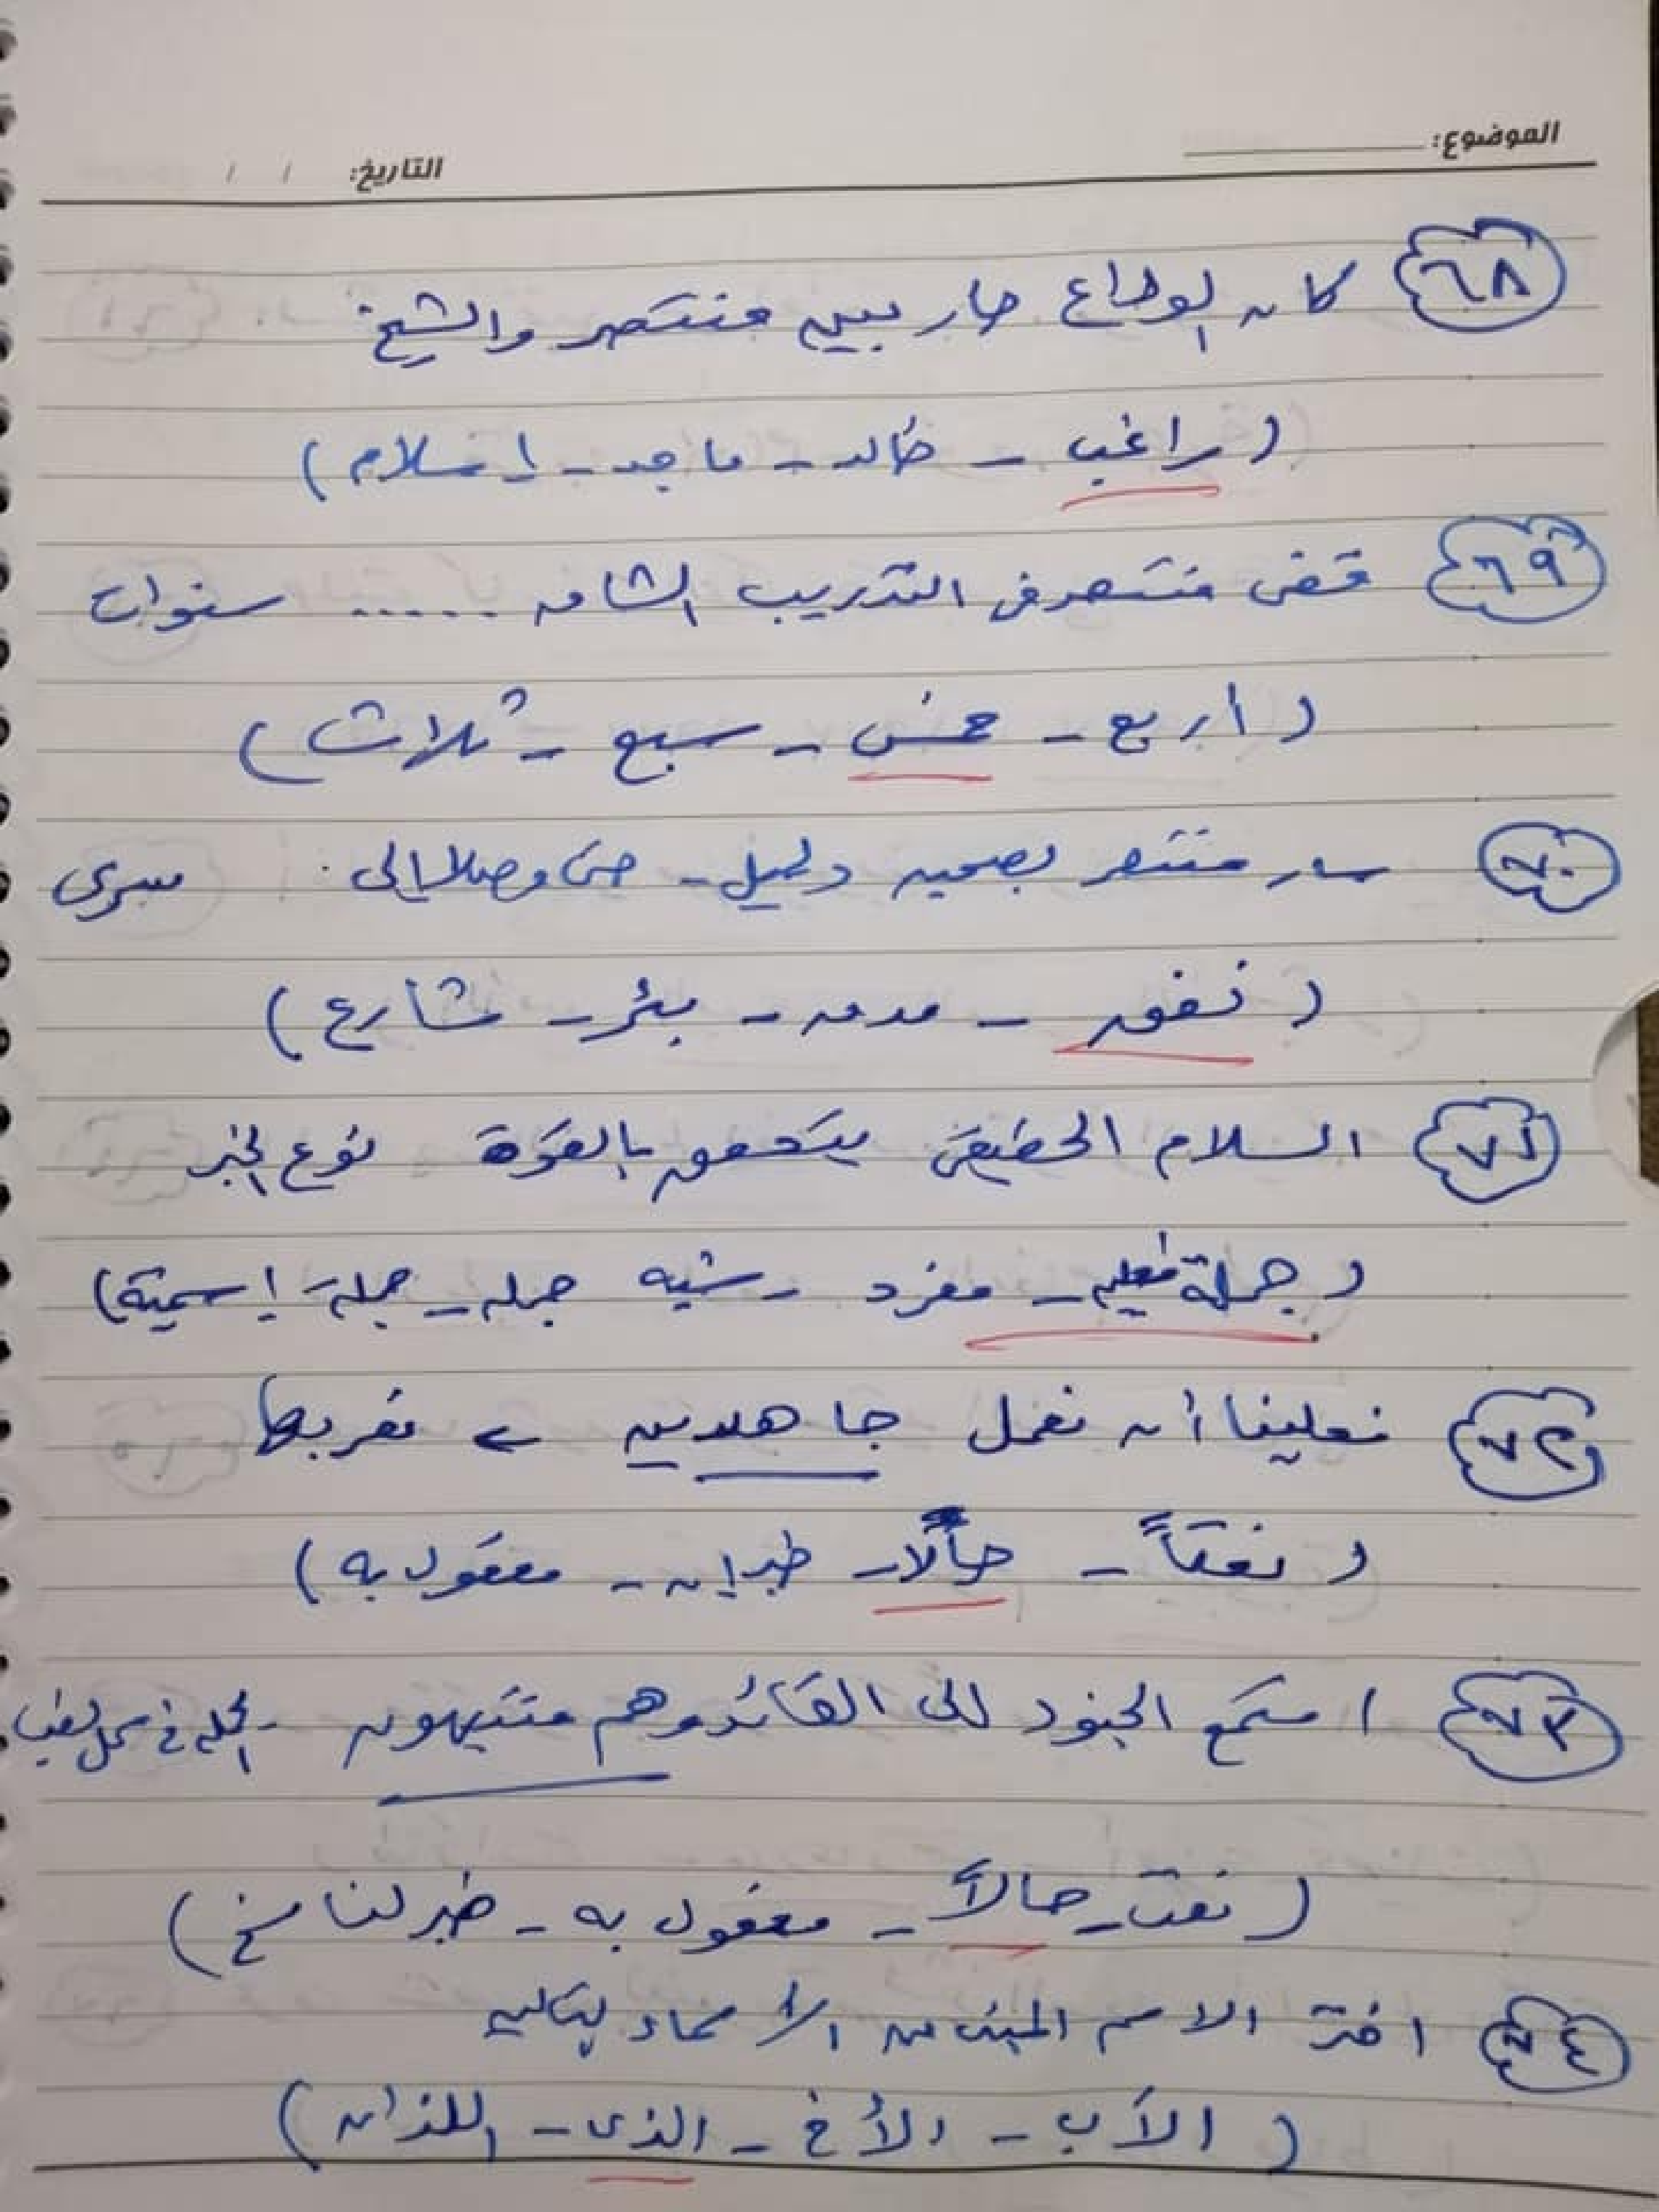 الموضوع:
التاريخ: / /
٦٨ كان الوداع حار بين منتصر والشيخ
(راغب - خالد - ماجد - إسلام)
٦٩ قضى منتصر في التدريب الشاق ..... سنوات
(اربع - خمس - سبع - ثلاث)
٧٠ سار منتصر بصحبه دليل - حتى وصلا إلى سري
(نفق - مدق - بئر - شارع)
٧١ السلام الحقيقى يتحقق بالقوة نوع الخبر
(جملة فعليه - مفرد - شبه جمله - جملة إسمية)
٧٢ فعلينا أن نعمل جاهدين ← تعربها
(نعتاً - حالاً - خبر إن - مفعول به)
٧٣ استمع الجنود إلى القائد وهم منتبهون - الجملة في محل نصب
(نعت - حالاً - مفعول به - خبر لناسخ)
٧٤ اختر الاسم المبنى من الأسماء التاليه
(الأب - الأخ - الذى - اللذان)